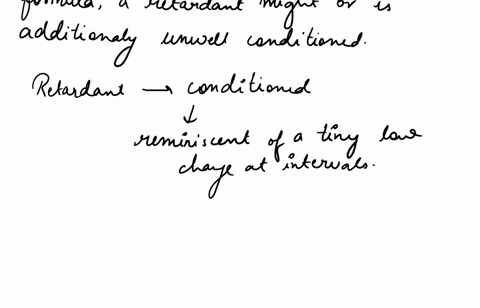 formula, a retardant might or is
additionaly unwell conditioned.
Retardant → conditioned
↓
reminiscent of a tiny low
charge at intervals.